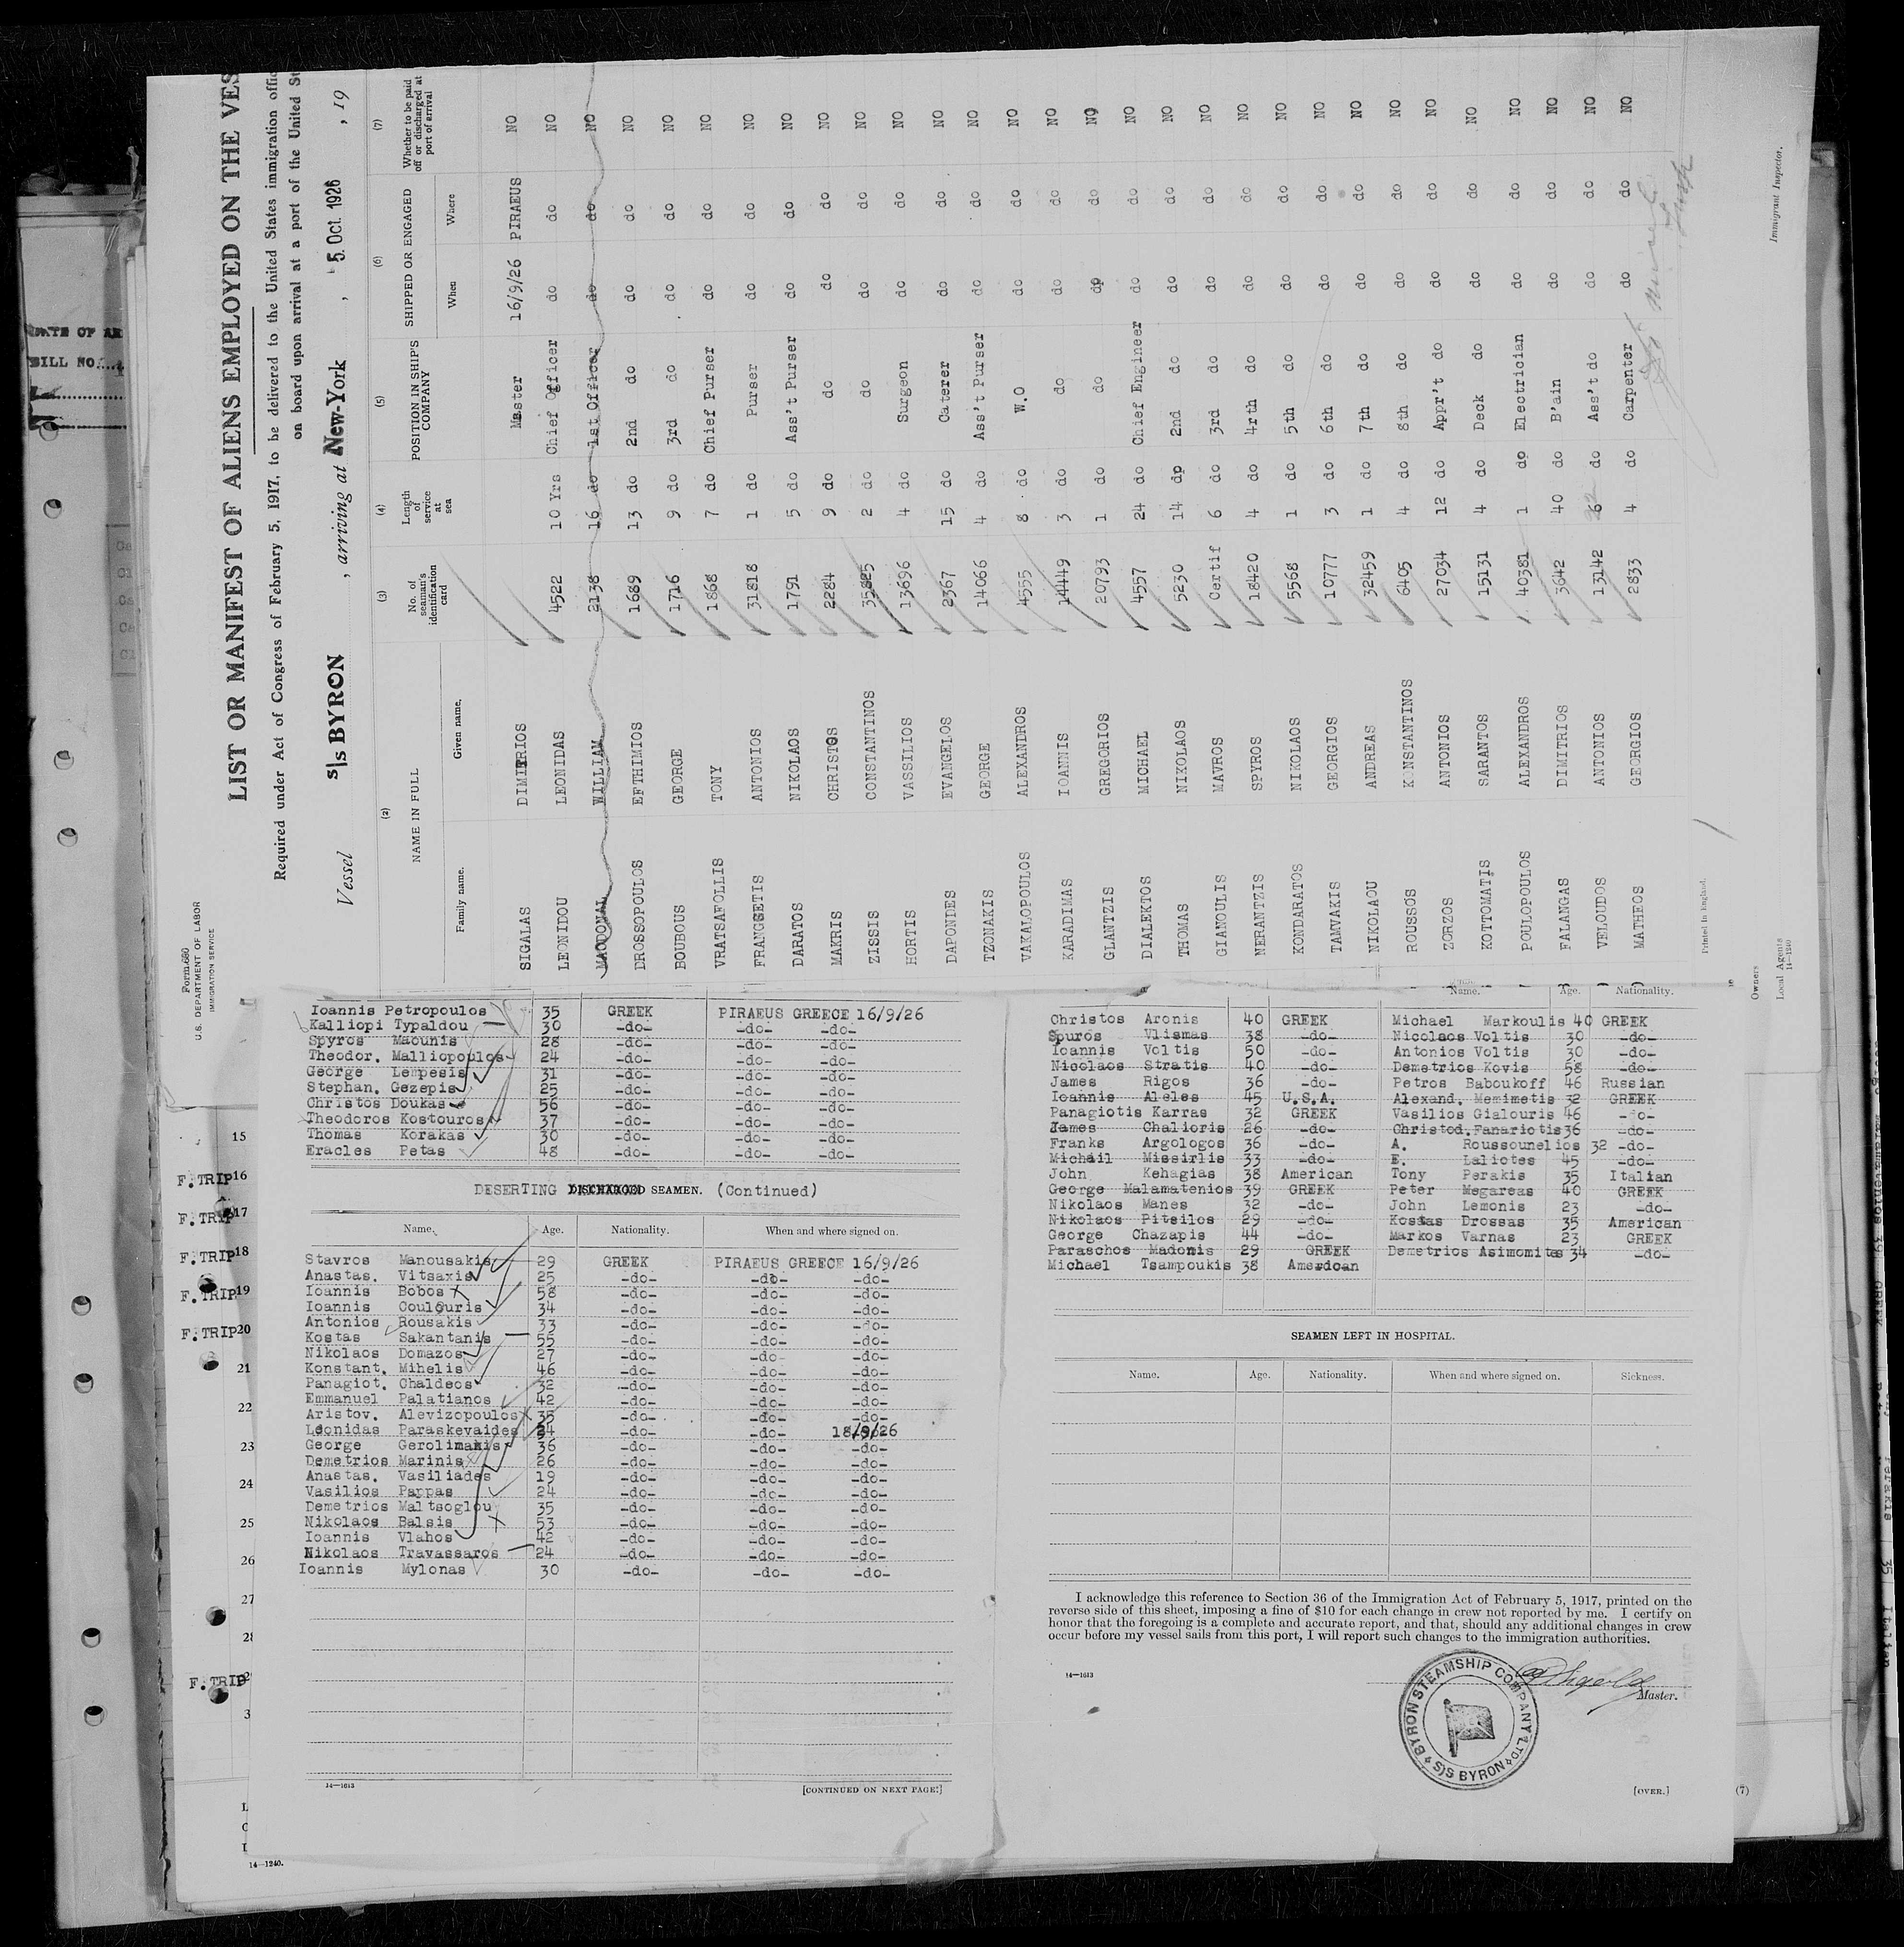 Form 680
U.S. DEPARTMENT OF LABOR
IMMIGRATION SERVICE
LIST OR MANIFEST OF ALIENS EMPLOYED ON THE VES
Required under Act of Congress of February 5, 1917, to be delivered to the United States immigration offic
on board upon arrival at a port of the United St
Vessel S/S BYRON , arriving at New-York , 5 Oct. 1926 , 19
(2) (3) (4) (5) (6) (7)
NAME IN FULL No. of seaman's identification card Length of service at sea POSITION IN SHIP'S COMPANY SHIPPED OR ENGAGED Whether to be paid off or discharged at port of arrival
Family name. Given name. When Where
SIGALAS DIMITRIOS Master 16/9/26 PIRAEUS NO
LEONIDOU LEONIDAS 4522 10 Yrs Chief Officer do do NO
MACDONAL WILLIAM 2138 16 do 1st Officer do do NO
DROSSOPOULOS EFTHIMIOS 1689 13 do 2nd do do do NO
BOUBOUS GEORGE 1716 9 do 3rd do do do NO
VRATSAFOLLIS TONY 1868 7 do Chief Purser do do NO
FRANGGETIS ANTONIOS 31818 1 do Purser do do NO
DARATOS NIKOLAOS 1791 5 do Ass't Purser do do NO
MAKRIS CHRISTOS 2284 9 do do do do NO
ZISSIS CONSTANTINOS 35825 2 do do do do NO
HORTIS VASSILIOS 13696 4 do Surgeon do do NO
DAPONDES EVANGELOS 2367 15 do Caterer do do NO
TZONAKIS GEORGE 14066 4 do Ass't Purser do do NO
VAKALOPOULOS ALEXANDROS 4555 8 do W.O do do NO
KARADIMAS IOANNIS 14449 3 do do do do NO
GLANTZIS GREGORIOS 20793 1 do do do do NO
DIALEKTOS MICHAEL 4557 24 do Chief Engineer do do NO
THOMAS NIKOLAOS 5230 14 do 2nd do do do NO
GIANOULIS MAVROS Certif 6 do 3rd do do do NO
NERANTZIS SPYROS 18420 4 do 4rth do do do NO
KONDARATOS NIKOLAOS 5568 1 do 5th do do do NO
TAMVAKIS GEORGIOS 10777 3 do 6th do do do NO
NIKOLAOU ANDREAS 32459 1 do 7th do do do NO
ROUSSOS KONSTANTINOS 6405 4 do 8th do do do NO
ZORZOS ANTONIOS 27034 12 do Appr't do do do NO
KOTTOMATIS SARANTOS 15131 4 do Deck do do do NO
POULOPOULOS ALEXANDROS 40381 1 do Electrician do do NO
FALANGAS DIMITRIOS 3642 40 do B'ain do do NO
VELOUDOS ANTONIOS 13142 do Ass't do do do NO
MATHEOS GEORGIOS 2833 4 do Carpenter do do NO
Immigrant Inspector.
Printed in England.
Owners
Local Agents
14—1240
DATE OF AR
BILL NO.
15
F.TRIP 16
F.TRIP 17
F.TRIP 18
F.TRIP 19
F.TRIP 20
21
22
23
24
25
26
27
28
F.TRIP
14—1240.
Ioannis Petropoulos 35 GREEK PIRAEUS GREECE 16/9/26
Kalliopi Typaldou 30 -do- -do- -do-
Spyros Maounis 28 -do- -do- -do-
Theodor. Malliopoulos 24 -do- -do- -do-
George Lempesis 31 -do- -do- -do-
Stephan. Gezepis 25 -do- -do- -do-
Christos Doukas 56 -do- -do- -do-
Theodoros Kostouros 37 -do- -do- -do-
Thomas Korakas 30 -do- -do- -do-
Eracles Petas 48 -do- -do- -do-
DESERTING SEAMEN. (Continued)
Name. Age. Nationality. When and where signed on.
Stavros Manousakis 29 GREEK PIRAEUS GREECE 16/9/26
Anastas. Vitsaxis 25 -do- -do- -do-
Ioannis Bobos 58 -do- -do- -do-
Ioannis Coulouris 34 -do- -do- -do-
Antonios Rousakis 33 -do- -do- -do-
Kostas Sakantanis 55 -do- -do- -do-
Nikolaos Domazos 27 -do- -do- -do-
Konstant. Mihelis 46 -do- -do- -do-
Panagiot. Chaldeos 32 -do- -do- -do-
Emmanuel Palatianos 42 -do- -do- -do-
Aristov. Alevizopoulos 35 -do- -do- -do-
Leonidas Paraskevaides 24 -do- -do- 18/9/26
George Gerolimakis 36 -do- -do- -do-
Demetrios Marinis 26 -do- -do- -do-
Anastas. Vasiliades 19 -do- -do- -do-
Vasilios Pappas 24 -do- -do- -do-
Demetrios Maltsoglou 35 -do- -do- -do-
Nikolaos Balsis 53 -do- -do- -do-
Ioannis Vlahos 42 -do- -do- -do-
Nikolaos Travassaros 24 -do- -do- -do-
Ioannis Mylonas 30 -do- -do- -do-
14—1613
[CONTINUED ON NEXT PAGE.]
Name. Age. Nationality.
Christos Aronis 40 GREEK Michael Markoulis 40 GREEK
Spuros Vlismas 38 -do- Nicolaos Voltis 30 -do-
Ioannis Voltis 50 -do- Antonios Voltis 30 -do-
Nicolaos Stratis 40 -do- Demetrios Kovis 58 -do-
James Rigos 36 -do- Petros Baboukoff 46 Russian
Ioannis Aleles 45 U.S.A. Alexand. Memimetis 32 GREEK
Panagiotis Karras 32 GREEK Vasilios Gialouris 46 -do-
James Chalioris 26 -do- Christod. Fanariotis 36 -do-
Franks Argologos 36 -do- A. Roussounelios 32 -do-
Michail Missirlis 33 -do- E. Laliotes 45 -do-
John Kehagias 38 American Tony Perakis 35 Italian
George Malamatenios 39 GREEK Peter Megareas 40 GREEK
Nikolaos Manes 32 -do- John Lemonis 23 -do-
Nikolaos Pitsilos 29 -do- Kostas Drossas 35 American
George Chazapis 44 -do- Markos Varnas 23 GREEK
Paraschos Madonis 29 GREEK Demetrios Asimomites 34 -do-
Michael Tsampoukis 38 American
SEAMEN LEFT IN HOSPITAL.
Name. Age. Nationality. When and where signed on. Sickness.
I acknowledge this reference to Section 36 of the Immigration Act of February 5, 1917, printed on the
reverse side of this sheet, imposing a fine of $10 for each change in crew not reported by me. I certify on
honor that the foregoing is a complete and accurate report, and that, should any additional changes in crew
occur before my vessel sails from this port, I will report such changes to the immigration authorities.
14—1613
Master.
BYRON STEAMSHIP COMPANY LTD
S/S BYRON
[OVER.]
(7)